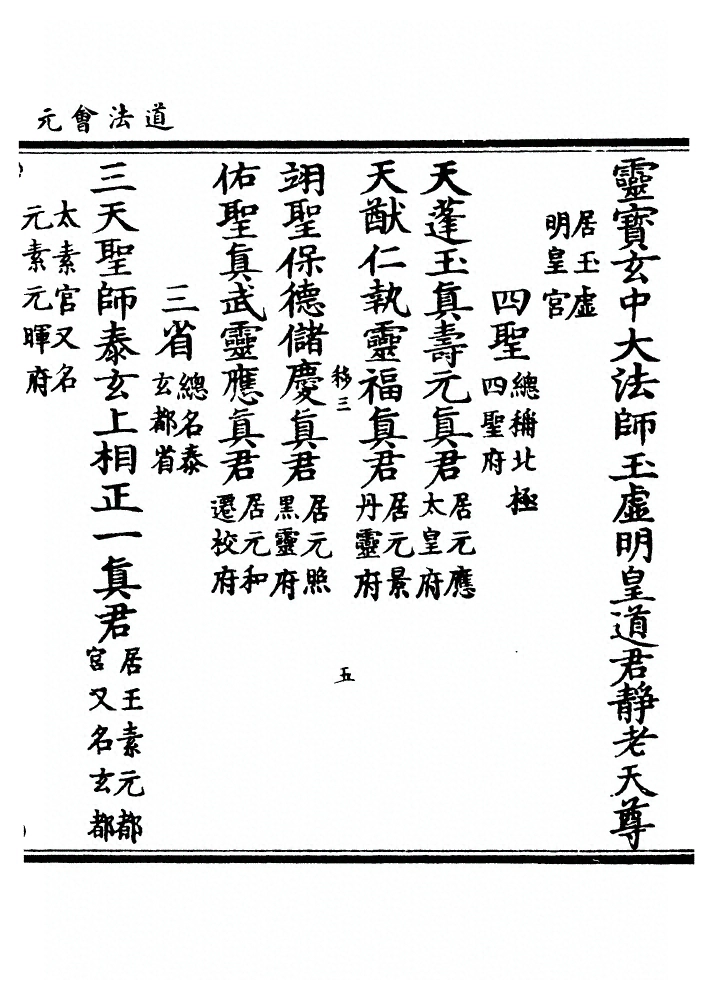 道法會元
靈寶玄中大法師玉虛明皇道君靜老天尊
居玉虛
明皇宮
四聖
總稱北極
四聖府
天蓬玉眞壽元眞君
居元應
太皇府
天猷仁執靈福眞君
居元景
丹靈府
移三
五
翊聖保德儲慶眞君
居元照
黑靈府
佑聖眞武靈應眞君
居元和
遷校府
三省
總名泰
玄都省
三天聖師泰玄上相正一眞君
居王素元都
宮又名玄都
太素宮又名
元素元暉府